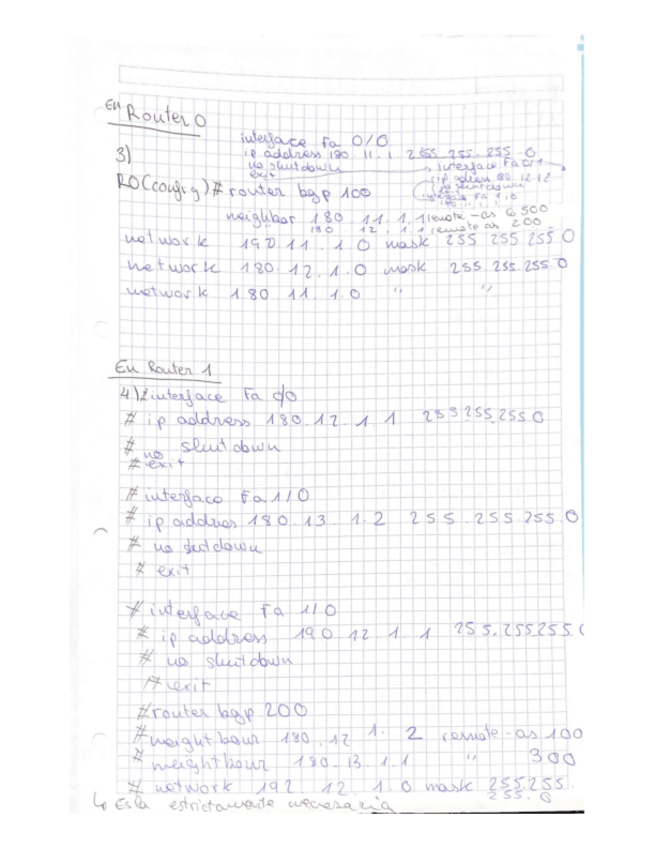 En Router 0
3)
interface Fa 0/0
ip address 180 11. 1. 2 255. 255. 255. 0
no shutdown
exit
interface Fa 0/1
no shutdown
R0(config)# router bgp 100
neighbor 180. 11. 1. 1 remote-as 6500
180 12. 1. 1 remote as 200
network 190 11. 1 0 mask 255 255 255 0
network 180. 12. 1. 0 mask 255. 255. 255. 0
network 180 11. 1 0 " "
En Router 1
4) # interface Fa 0/0
# ip address 180. 12. 1 1 255.255.255 0
# no shutdown
# exit
# interface Fa 1/0
# ip addres 180 13. 1. 2 255. 255 255. 0
# no shutdown
# exit
# interface Fa 1/0
# ip address 190 12 1 1 255.255255.0
# no shutdown
# exit
# router bgp 200
# neightbour 180. 12 1. 2 remote-as 100
# neightbour 180. 13. 1. 1 " 300
# network 192. 12. 1. 0 mask 255.255.
255. 0
↳ Es la estrictamente necesaria